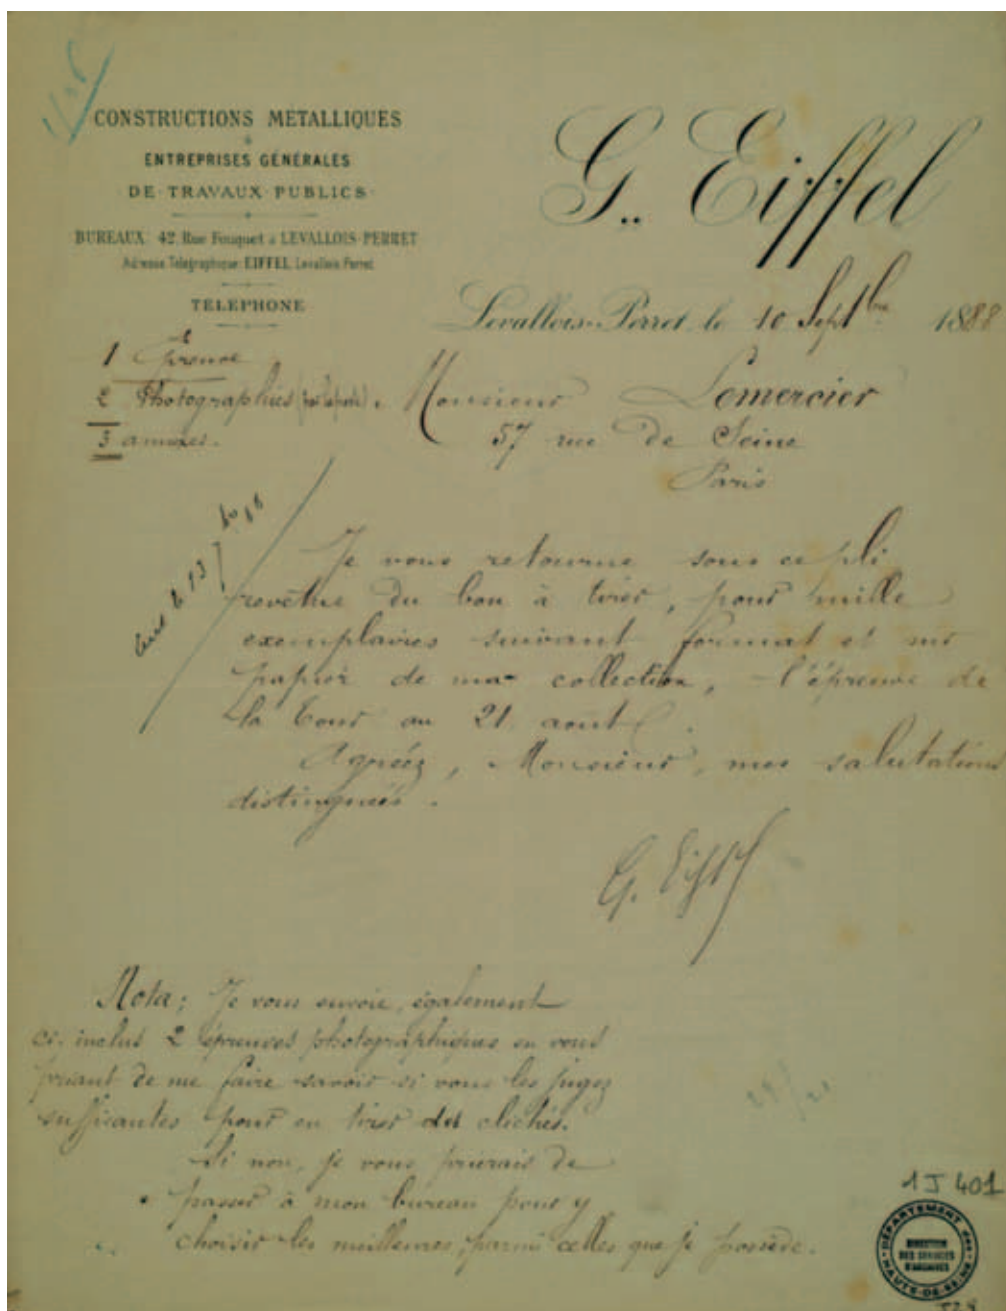 CONSTRUCTIONS METALLIQUES
ENTREPRISES GÉNÉRALES
DE·TRAVAUX·PUBLICS
BUREAUX: 42, Rue Fouquet à LEVALLOIS-PERRET
Adresse Télégraphique: EIFFEL, Levallois Perret
TELEPHONE
G. Eiffel
Levallois-Perret, le 10 Septbre 1888
1 Épreuve
2 Photographies
3 annexes.
Monsieur Lemercier
57 rue de Seine
Paris
Je vous retourne sous ce pli
revêtue du bon à tirer, pour mille
exemplaires suivant format et sur
papier de ma collection, l'épreuve de
la Tour au 21 août.
Agréez, Monsieur, mes salutations
distinguées.
G. Eiffel
Nota: Je vous envoie, également
ci-inclus 2 épreuves photographiques en vous
priant de me faire savoir si vous les jugez
suffisantes pour en tirer des clichés.
Si non, je vous prierais de
passer à mon bureau pour y
choisir les meilleures, parmi celles que je possède.
1J 401
DÉPARTEMENT des HAUTS-DE-SEINE
DIRECTION
DES SERVICES
D'ARCHIVES